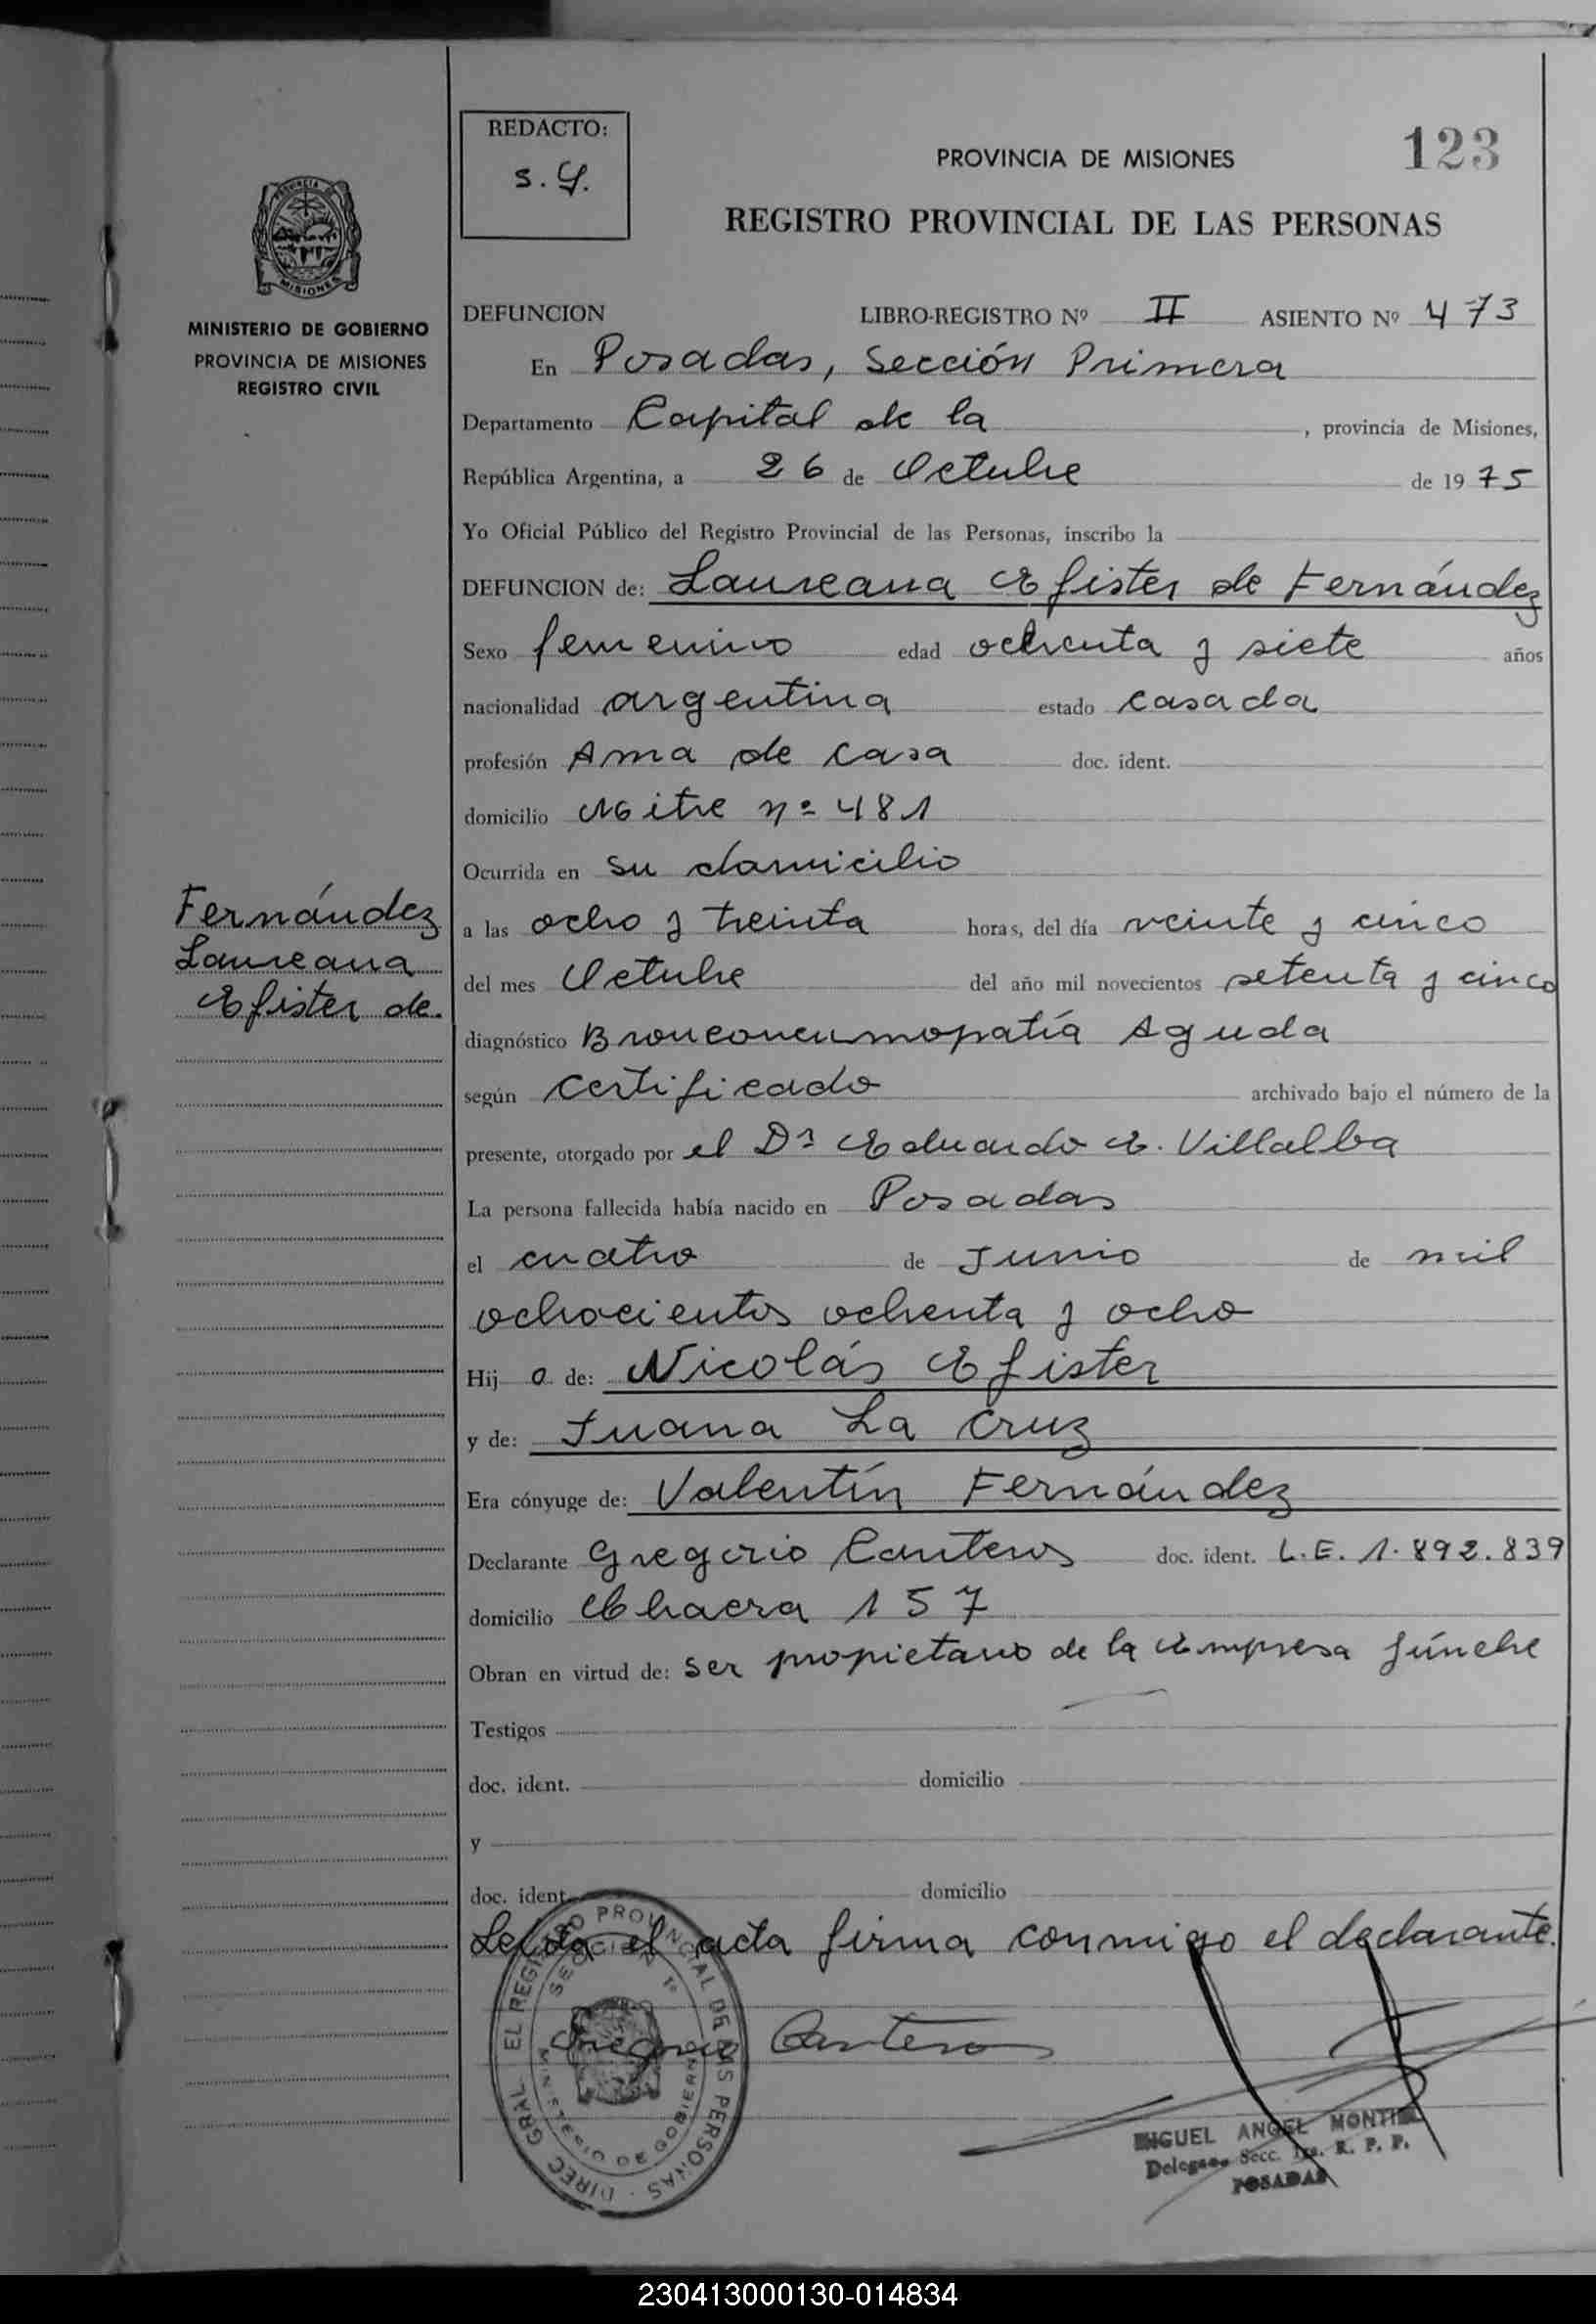 REDACTO:
S. G.
PROVINCIA DE MISIONES
123
REGISTRO PROVINCIAL DE LAS PERSONAS
PROVINCIA DE
MISIONES
MINISTERIO DE GOBIERNO
PROVINCIA DE MISIONES
REGISTRO CIVIL
DEFUNCION LIBRO-REGISTRO Nº II ASIENTO Nº 473
En Posadas, Sección Primera
Departamento Capital de la , provincia de Misiones,
República Argentina, a 26 de Octubre de 1975
Yo Oficial Público del Registro Provincial de las Personas, inscribo la
DEFUNCION de: Laureana Efister de Fernández
Sexo femenino edad ochenta y siete años
nacionalidad argentina estado casada
profesión Ama de casa doc. ident.
domicilio Mitre nº 481
Ocurrida en su domicilio
Fernández
Laureana
Efister de.
a las ocho y treinta horas, del día veinte y cinco
del mes Octubre del año mil novecientos setenta y cinco
diagnóstico Bronconeumopatía Aguda
según certificado archivado bajo el número de la
presente, otorgado por el Dr Eduardo E. Villalba
La persona fallecida había nacido en Posadas
el cuatro de Junio de mil
ochocientos ochenta y ocho
Hij a de: Nicolás Efister
y de: Juana La Cruz
Era cónyuge de: Valentín Fernández
Declarante Gregorio Canteros doc. ident. L.E. 1.892.839
domicilio Chacra 157
Obran en virtud de: ser propietario de la Empresa fúnebre
Testigos
doc. ident. domicilio
y
doc. ident. domicilio
Leída el acta firma conmigo el declarante.
Gregorio Canteros
DIREC. GRAL. EL REGISTRO PROVINCIAL DE LAS PERSONAS
SECCION 1ª
MINISTERIO DE GOBIERNO
MIGUEL ANGEL MONTIEL
Delegado Secc. 1ra. R. P. P.
POSADAS
230413000130-014834